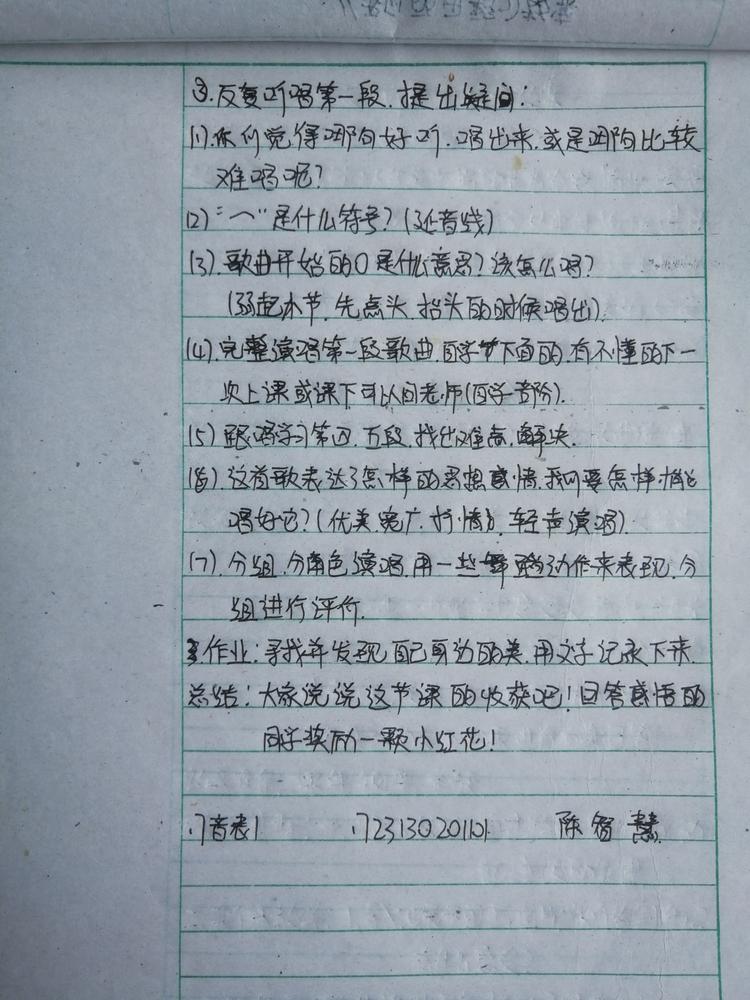 ③.反复听唱第一段.提出疑问:
(1).你们觉得哪句好听.唱出来.或是哪句比较
难唱呢?
(2)"⌒"是什么符号?(延音线)
(3).歌曲开始的0是什么意思?该怎么唱?
(弱起小节.先点头.抬头的时候唱出).
(4).完整演唱第一段歌曲.自学下面的.有不懂的下一
次上课或课下可以问老师(自学部份).
(5).跟唱学习第四.五段.找出难点.解决.
(6).这首歌表达了怎样的思想感情.我们要怎样
唱好它?(优美宽广.抒情.轻声演唱).
(7).分组.分角色演唱.用一些舞蹈动作来表现.分
组进行评价.
3.作业:寻找并发现自己身边的美.用文字记录下来.
总结:大家说说这节课的收获吧!回答感悟的
同学奖励一颗小红花!
17音表1 1723130201101 陈智慧